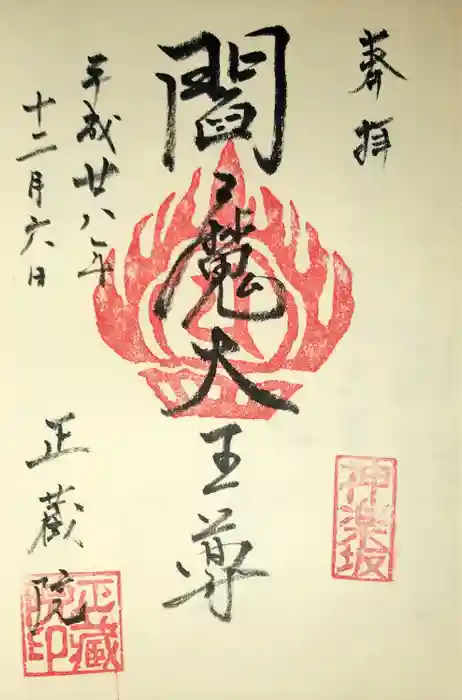 奉拝
神楽坂
閻魔大王尊
平成廿八年
十二月六日
正蔵院
正蔵院印